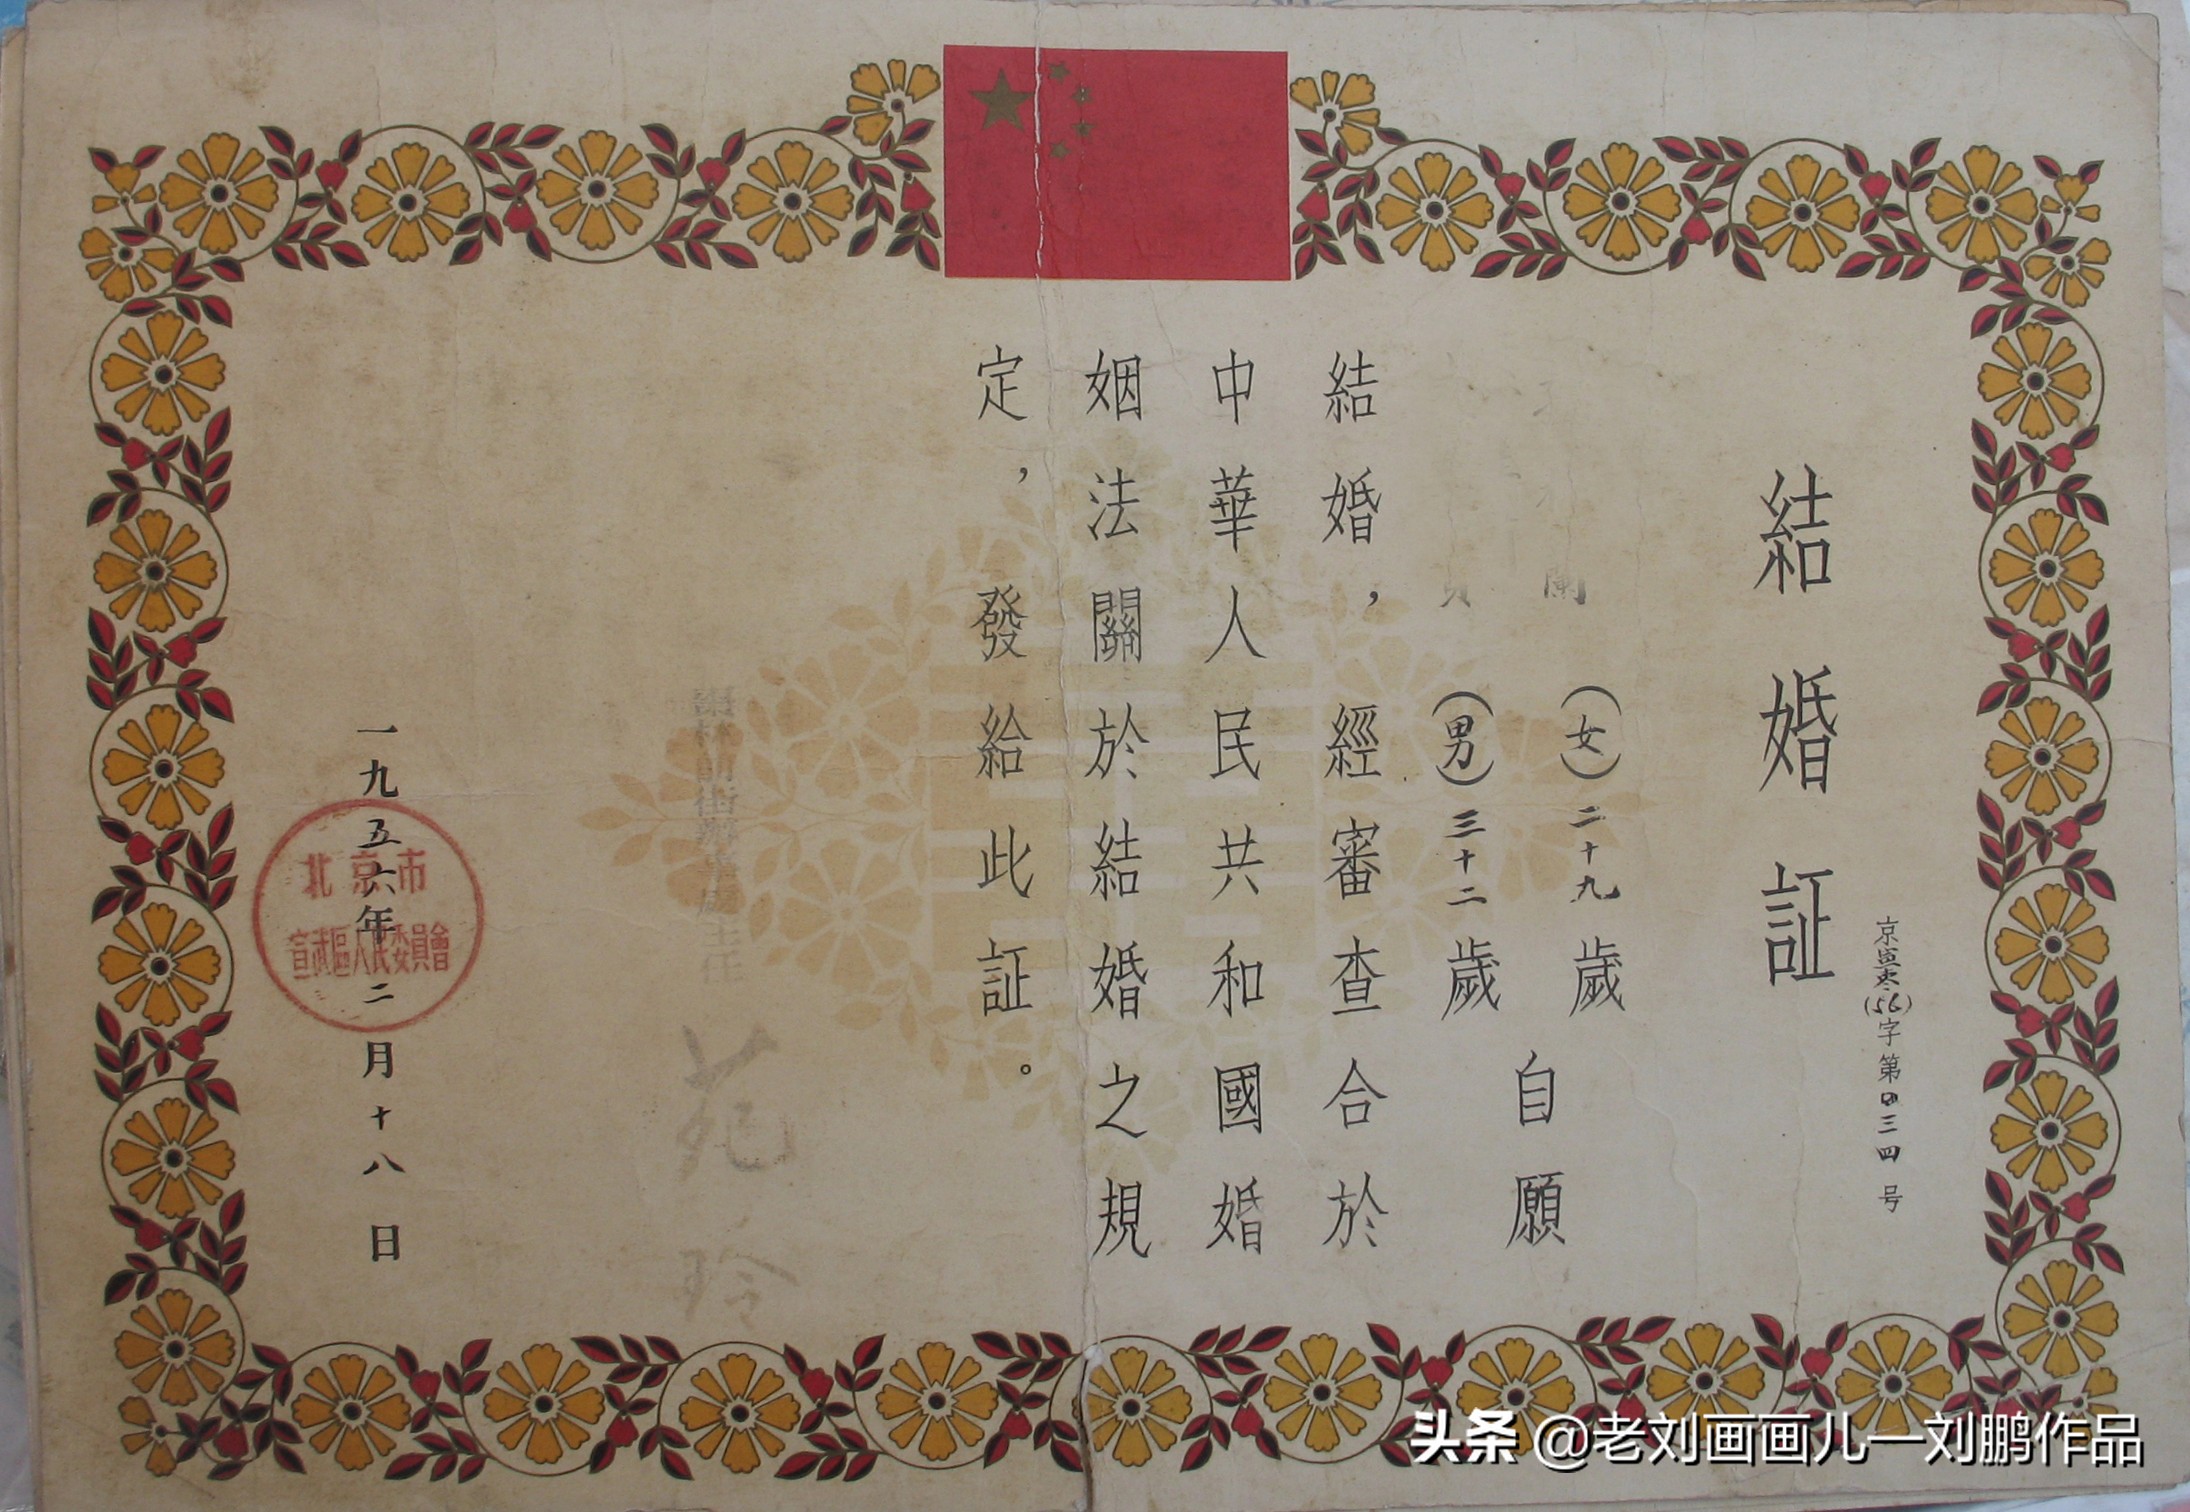 結婚証
京宣枣(56)字第四三四号
蘭(女)二十九歲
(男)三十二歲
自願
結婚，經審查合於
中華人民共和國婚
姻法關於結婚之規
定，發給此証。
街辦事處主任
一九五六年二月十八日
北京市
宣武區人民委員會
头条 @老刘画画儿一刘鹏作品